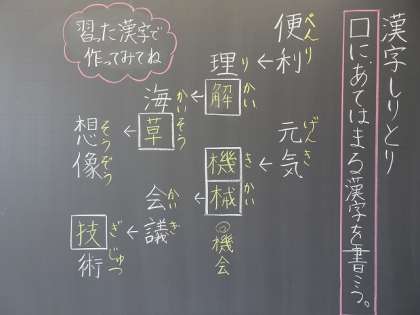 漢字しりとり
□に、あてはまる漢字を書こう。
便利 べんり
←
理解 りかい
←
海草 かいそう
←
想像 そうぞう
元気 げんき
←
機械 きかい
◎機会
←
会議 かいぎ
←
技術 ぎじゅつ
習った漢字で
作ってみてね